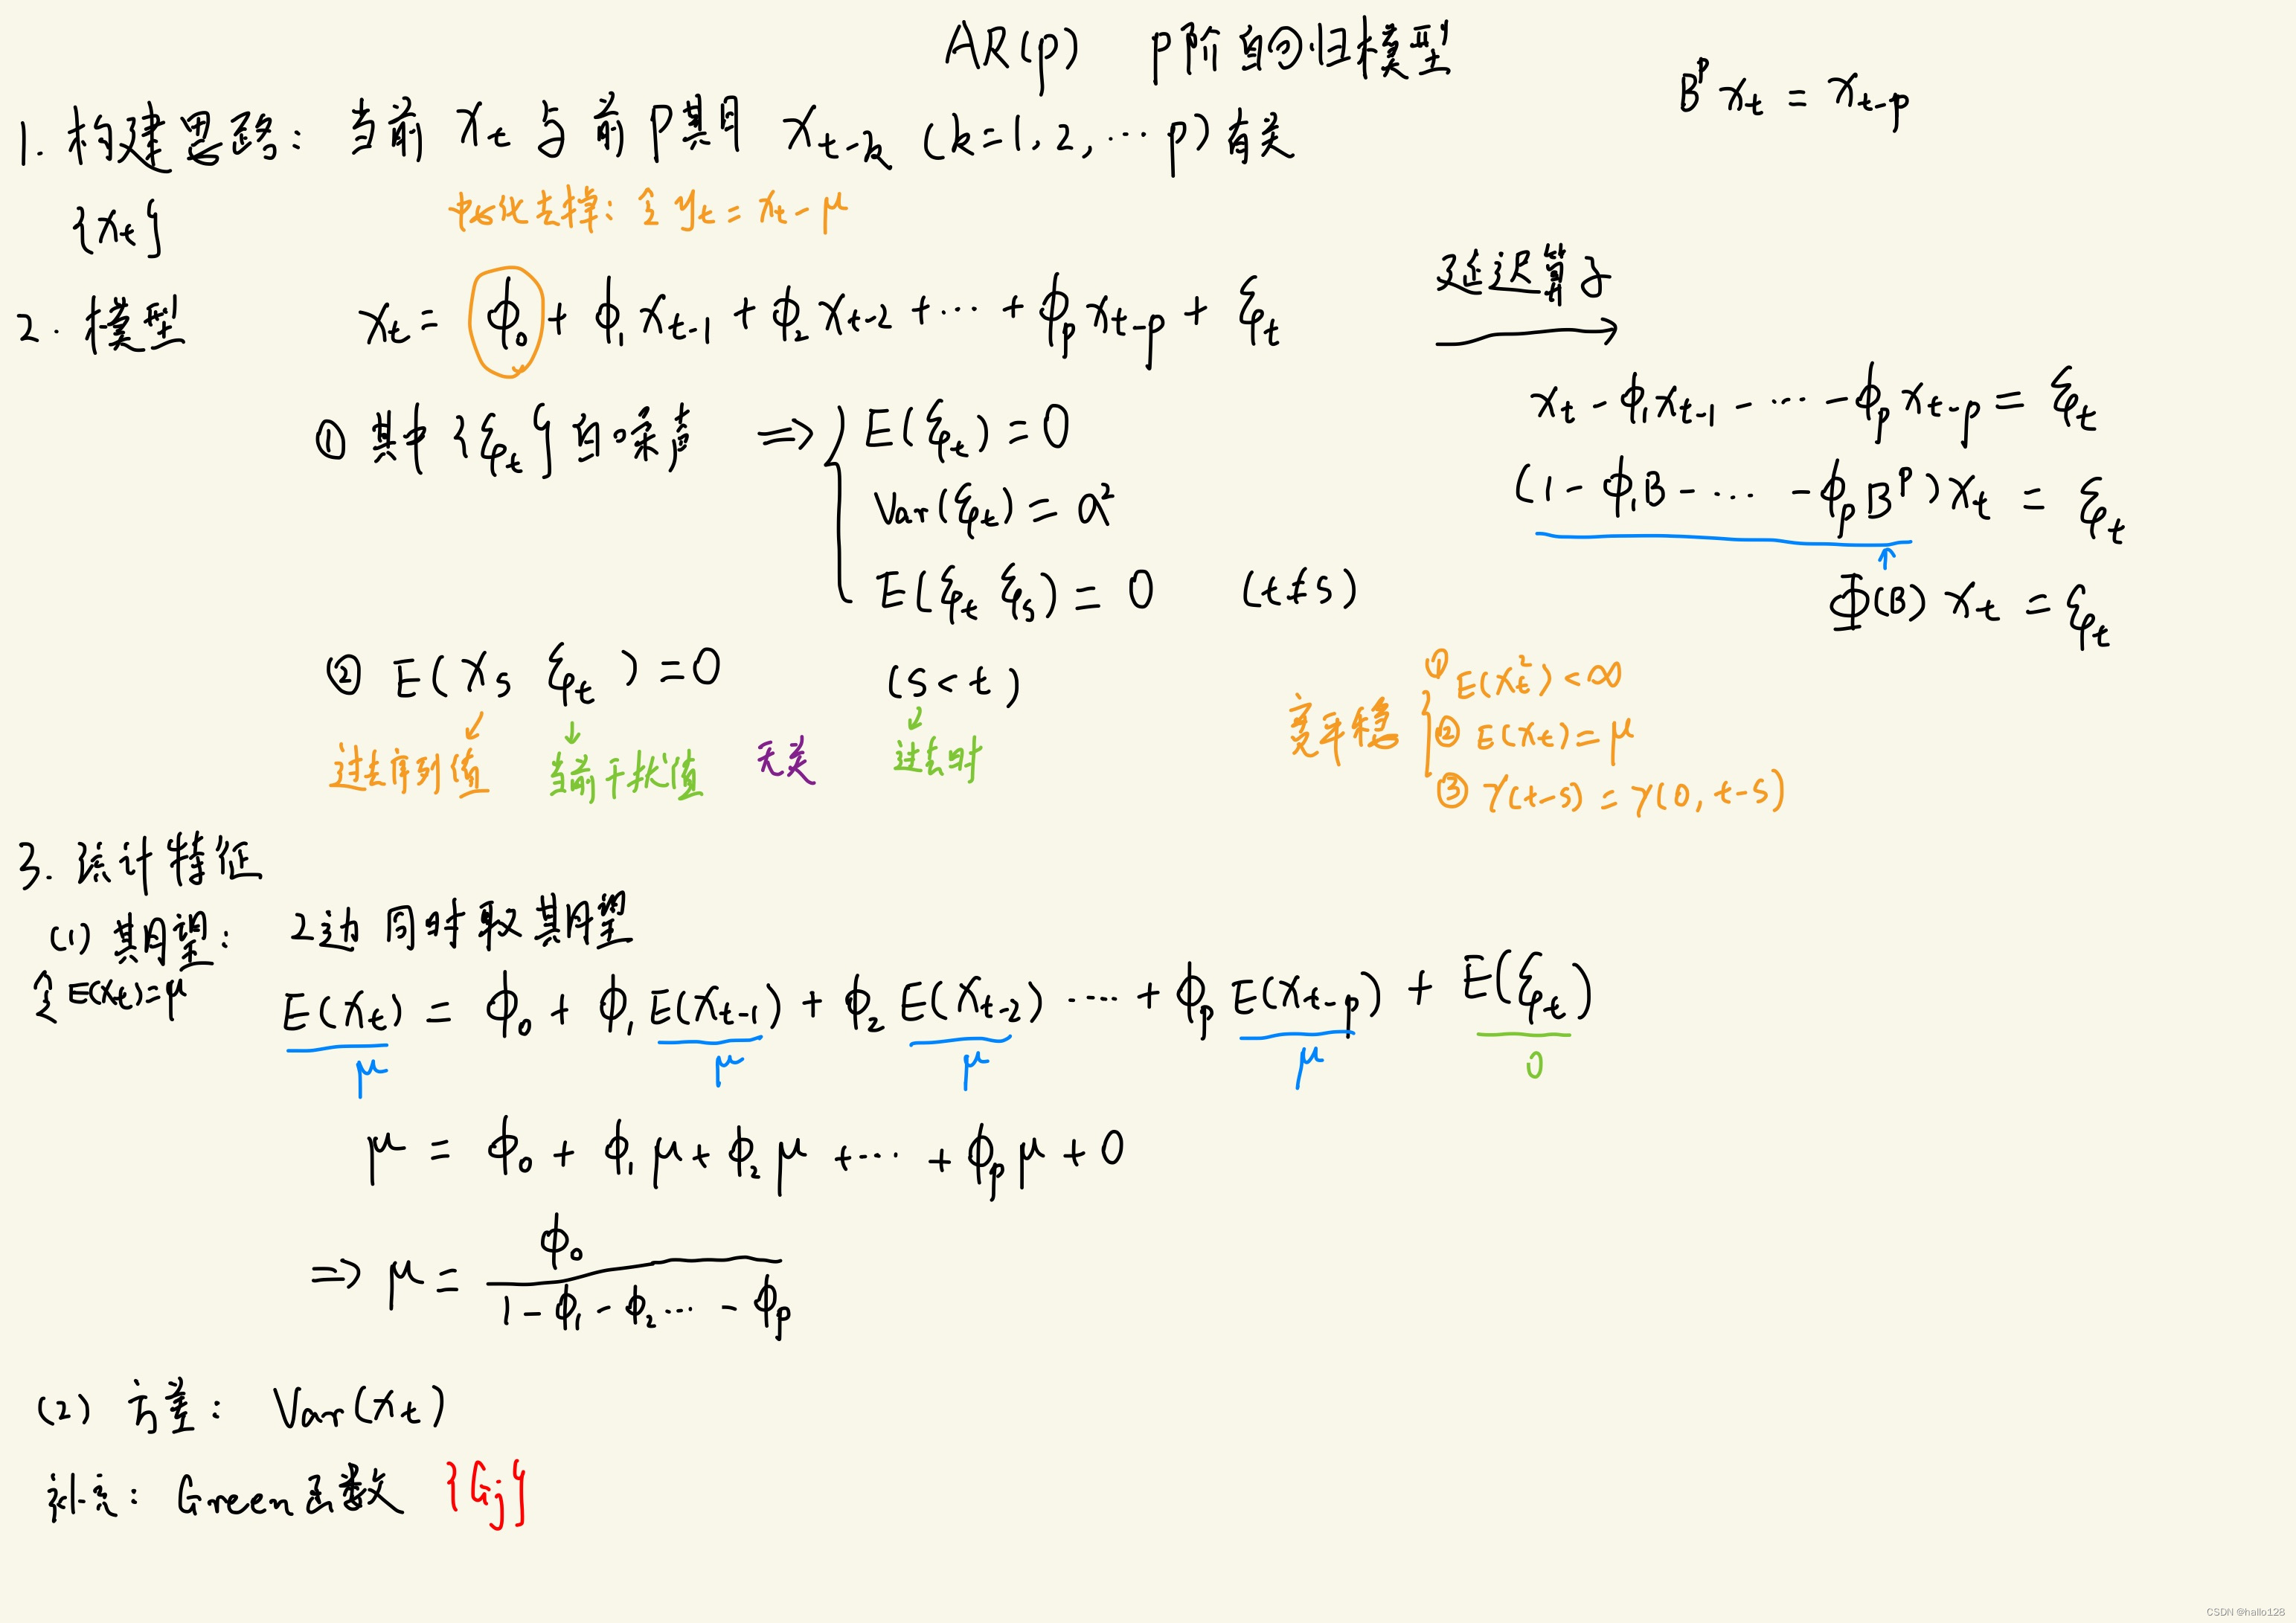 AR(p) P阶自回归模型
B^p x_t = x_{t-p}
1. 构建思路: 当前 x_t 与前P期 x_{t-k} (k=1, 2, ⋯ p) 有关
{x_t}
中心化去掉: 令 y_t = x_t - μ
2. 模型 x_t = ϕ_0 + ϕ_1 x_{t-1} + ϕ_2 x_{t-2} + ⋯ + ϕ_p x_{t-p} + ξ_t
延迟算子
x_t - ϕ_1 x_{t-1} - ⋯ - ϕ_p x_{t-p} = ξ_t
(1 - ϕ_1 B - ⋯ - ϕ_p B^p) x_t = ξ_t
Φ(B) x_t = ξ_t
① 其中 {ξ_t} 白噪声 ⇒ { E(ξ_t) = 0
Var(ξ_t) = σ²
E(ξ_t ξ_s) = 0 (t≠s)
② E(x_s ξ_t) = 0 (s < t)
↙ ↓ ↙
过去序列值 当前干扰值 无关 过去时
宽平稳 { ① E(x_t²) < ∞
② E(x_t) = μ
③ γ(t-s) = γ(0, t-s)
3. 统计特征
(1) 期望: 2边同时取期望
令 E(x_t) = μ
E(x_t) = ϕ_0 + ϕ_1 E(x_{t-1}) + ϕ_2 E(x_{t-2}) ⋯ + ϕ_p E(x_{t-p}) + E(ξ_t)
μ μ μ μ 0
μ = ϕ_0 + ϕ_1 μ + ϕ_2 μ + ⋯ + ϕ_p μ + 0
⇒ μ = ϕ_0 / (1 - ϕ_1 - ϕ_2 ⋯ - ϕ_p)
(2) 方差: Var(x_t)
补充: Green函数 {G_j}
CSDN @hallo128